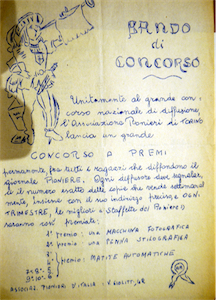 BANDO
di
CONCORSO
Unitamente al grande con-
corso nazionale di diffusione,
l'Associazione Pionieri di TORINO
lancia un grande
CONCORSO A PREMI
permanente fra tutti i ragazzi che diffondono il
giornale PIONIERE. Ogni diffusore deve segnalar-
ci il numero esatto delle copie che vende settimanal
mente, insieme con il suo indirizzo preciso e OGNI
TRIMESTRE, le migliori "Staffette del Pioniere"
saranno così premiate:
1° premio: una MACCHINA FOTOGRAFICA
2° premio: una PENNA STILOGRAFICA
premio: MATITE AUTOMATICHE
ASSOCIAZ. PIONIERI D'ITALIA